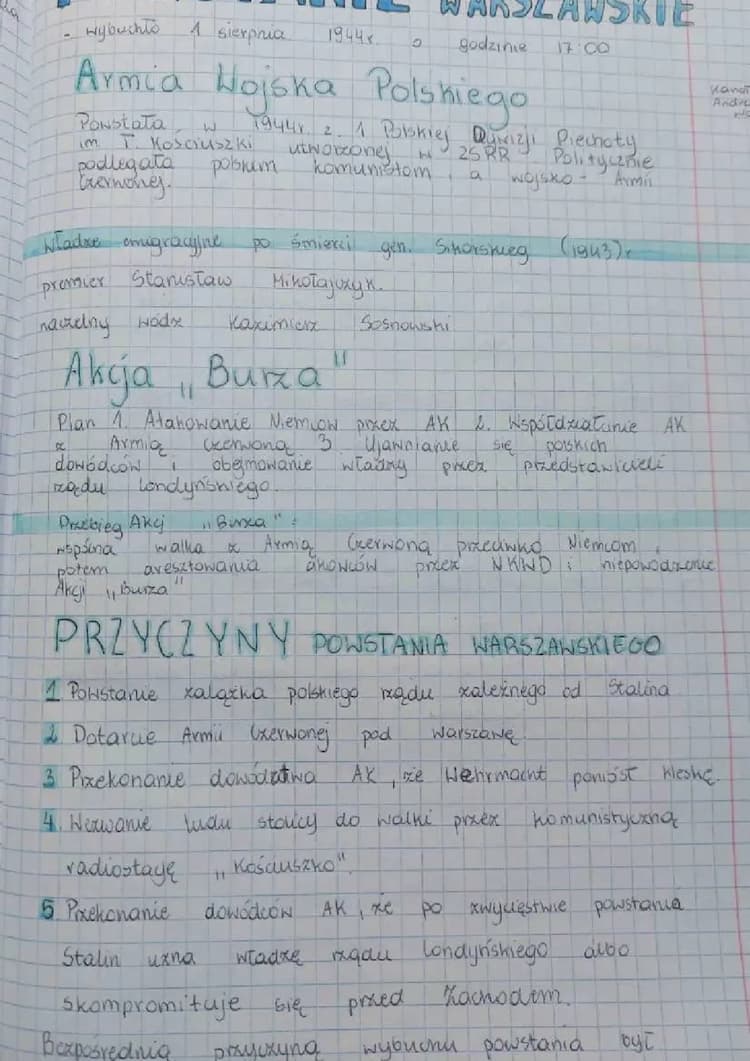 WARSZAWSKIE
- wybuchło 1 sierpnia 1944r. o godzinie 17:00
Armia Wojska Polskiego
Powstała w 1944r. z 1 Polskiej Dywizji Piechoty
im T. Kościuszki utworzonej w ZSRR Politycznie
podlegała polskim komunistom, a wojsko - Armii
Czerwonej.
Władze emigracyjne po śmierci gen. Sikorskieg (1943)r
premier Stanisław Mikołajczyk.
naczelny wódz Kazimierz Sosnowski
Akcja „Burza"
Plan 1. Atakowanie Niemców przez AK 2. Współdziałanie AK
z Armią Czerwoną 3 Ujawnianie się polskich
dowódców i obejmowanie władzy przez przedstawicieli
rządu Londyńskiego.
Przebieg Akcj „Burza":
wspólna walka z Armią Czerwoną przeciwko Niemcom,
potem aresztowania akowców przez NKWD i niepowodzenie
Akcji „Burza"
PRZYCZYNY POWSTANIA WARSZAWSKIEGO
1 Powstanie zalążka polskiego rządu zależnego od Stalina
2 Dotarcie Armii Czerwonej pod Warszawę.
3 Przekonanie dowództwa AK, że Wehrmacht poniósł klęskę.
4. Wezwanie ludu stolicy do walki przez komunistyczną
radiostację „Kościuszko".
5 Przekonanie dowódców AK, że po zwycięstwie powstania
Stalin uzna władzę rządu Londyńskiego albo
skompromituje się przed Zachodem.
Bezpośrednią przyczyną wybuchu powstania był